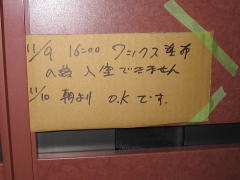 11/9 16:00 ワックス塗布
の故 入室できません
11/10 朝より O.Kです.